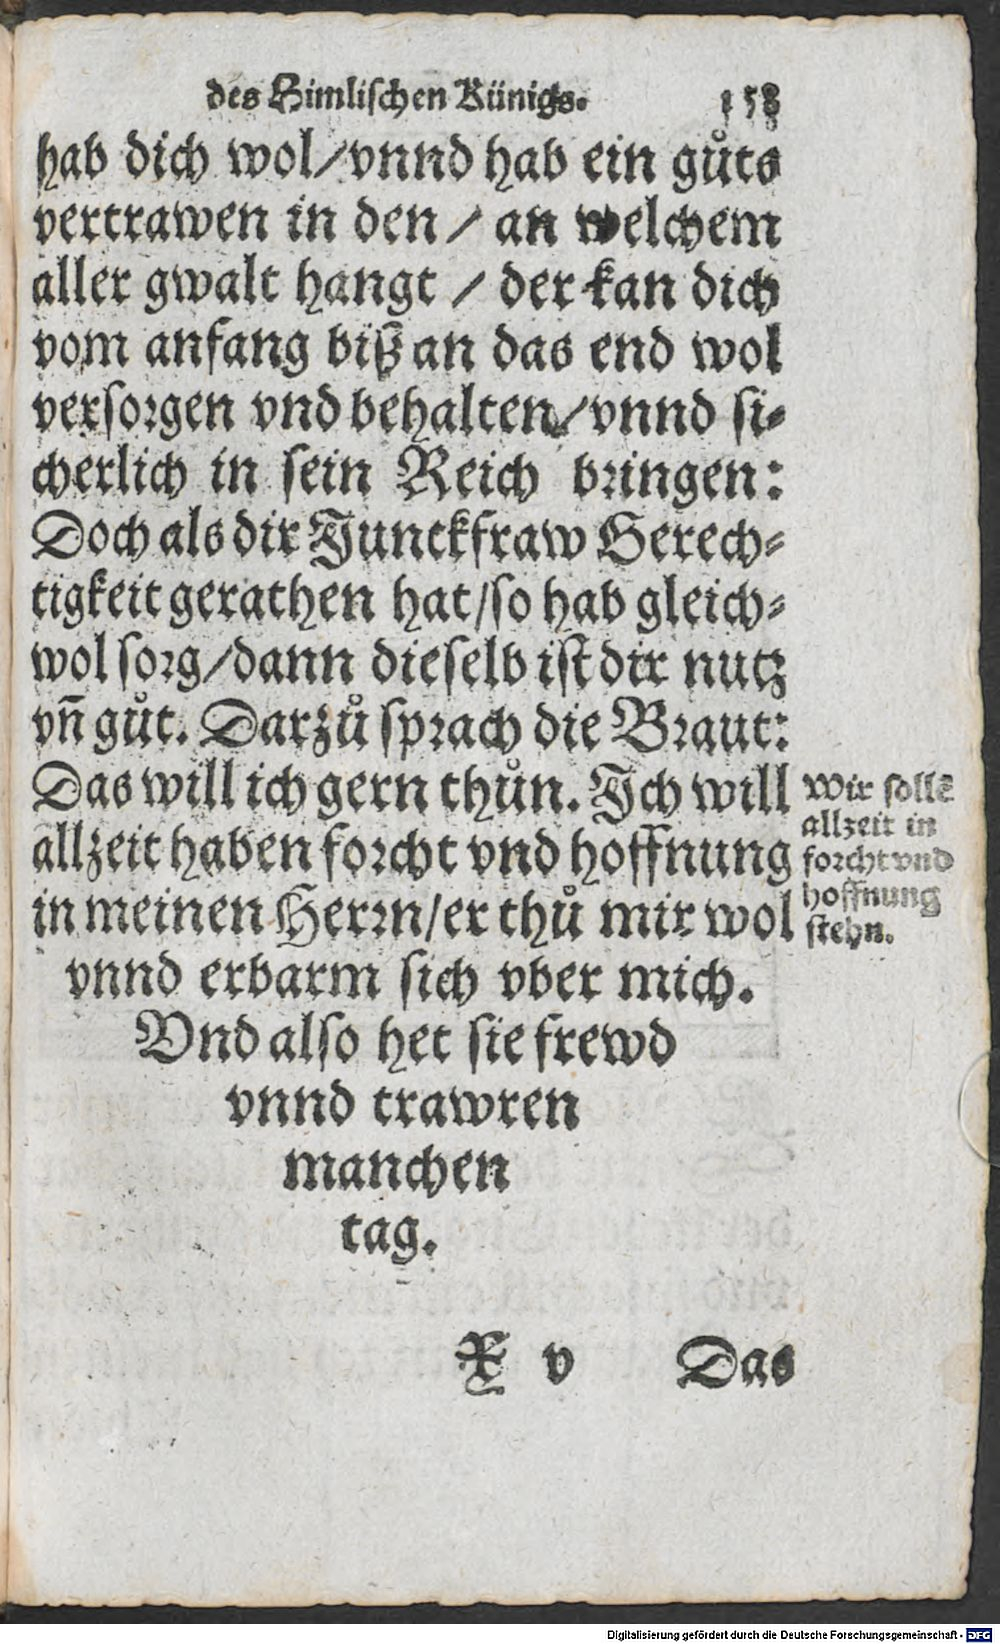 des Himlischen Künigs. 158
hab dich wol/vnnd hab ein gůts
vertrawen in den / an welchem
aller gwalt hangt / der kan dich
vom anfang biß an das end wol
versorgen vnd behalten/vnnd si-
cherlich in sein Reich bringen:
Doch als dir Junckfraw Gerech-
tigkeit gerathen hat/so hab gleich-
wol sorg/dann dieselb ist dir nutz
vn̄ gůt. Darzů sprach die Braut:
Das will ich gern thůn. Ich will
allzeit haben forcht vnd hoffnung
in meinen Herrn/er thů mir wol
vnnd erbarm sich vber mich.
Vnd also het sie frewd
vnnd trawren
manchen
tag.
Wir sollē
allzeit in
forcht vnd
hoffnung
stehn.
X v Das
Digitalisierung gefördert durch die Deutsche Forschungsgemeinschaft - DFG